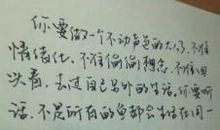 你要做一个不动声色的大人了。不准
情绪化,不准偷偷想念,不准回
头看。去过自己另外的生活。你要听
话,不是所有的鱼都会生活在同一